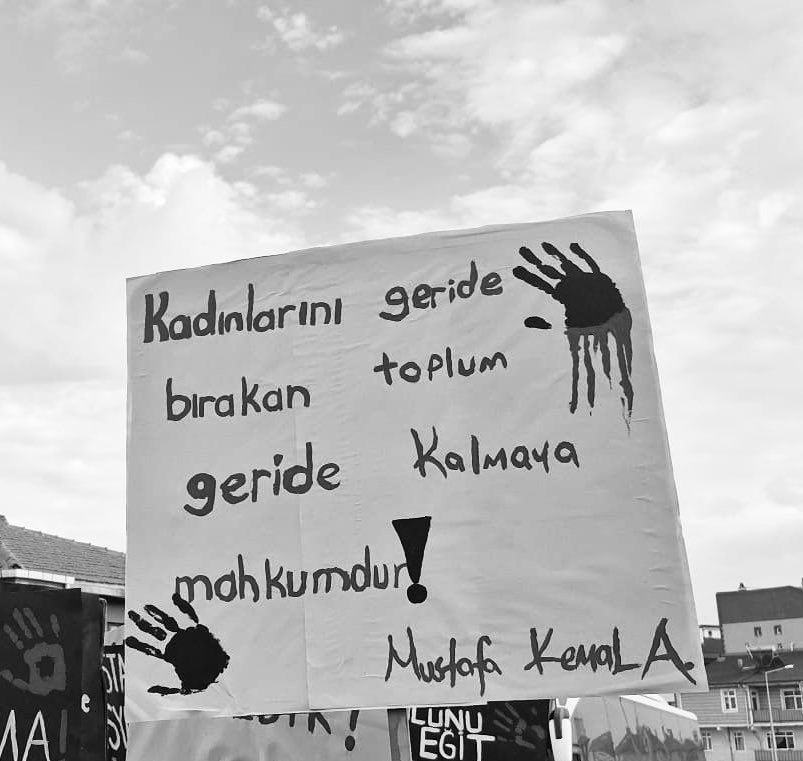 Kadınlarını geride
bırakan toplum
geride Kalmaya
mahkumdur!
Mustafa Kemal A.
LUNU
EĞİT